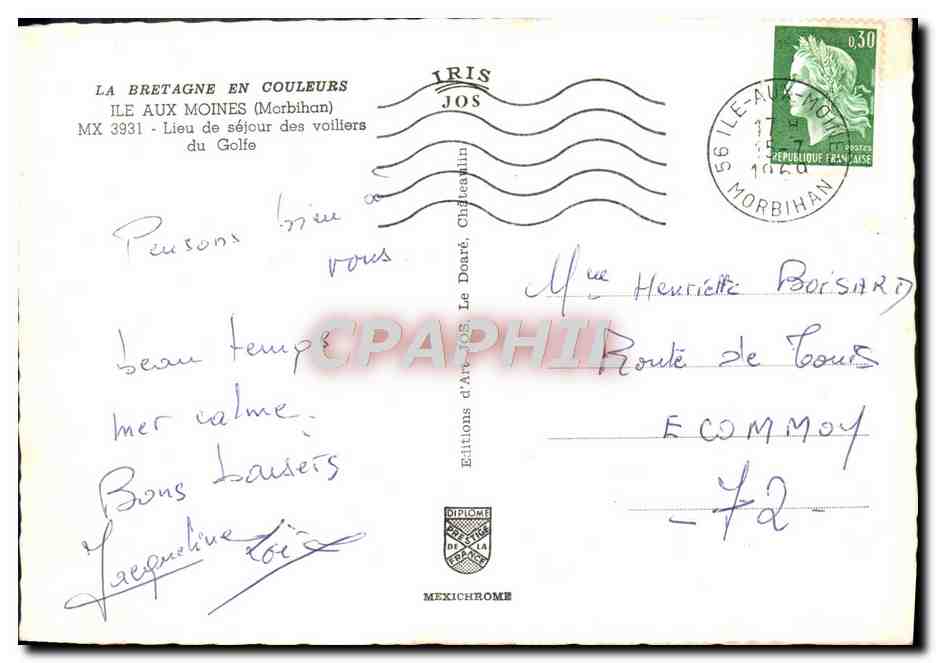 LA BRETAGNE EN COULEURS
ILE AUX MOINES (Morbihan)
MX 3931 - Lieu de séjour des voiliers
du Golfe
IRIS
JOS
0,30
POSTES
REPUBLIQUE FRANÇAISE
56 ILE-AUX-MOINES
17 H
15-7
1969
MORBIHAN
Pensons bien à
vous
beau temps
mer calme.
Bons baisers
Jacqueline
Editions d'Art JOS Le Doaré, Châteaulin
CPAPHIL
Mme Henriette BOISARD
Route de Tours
ECOMMOY
- 72 -
DIPLOME
PRESTIGE
DE LA
FRANCE
MEXICHROME